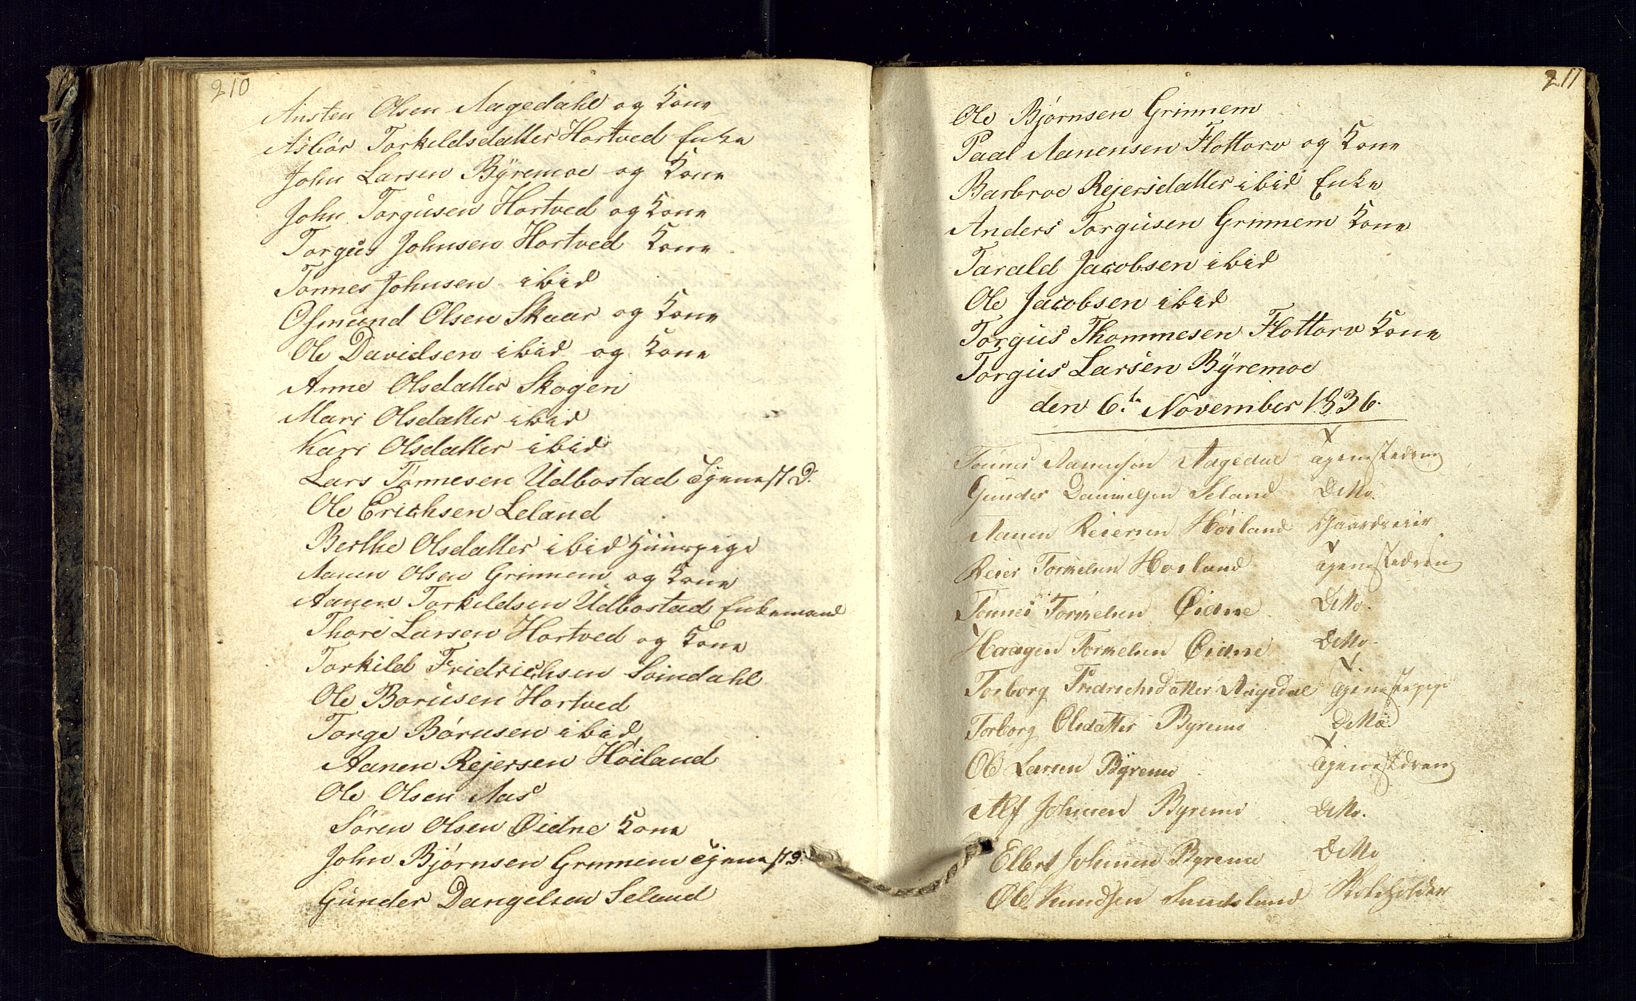 210
Austen Olsen Aagedahl og Kone
Asbör Torkildsdatter Hortved Enke
John Larsen Bÿremoe og Kone
John Torgusen Hortved og Kone
Torgus Johnsen Hortved Kone
Tönnes Johnsen ibid
Osmund Olsen Skaar og Kone
Ole Davidsen ibid og Kone
Anne Olsdatter Skogen
Mari Olsdatter ibid
Kari Olsdatter ibid
Lars Tönnesen Udbostad Tjenest D.
Ole Erichsen Leland
Berthe Olsdatter ibid Huuspige
Aanen Olsen Grinnem og Kone
Aanen Torkildsen Udbostad Enkemand
Thore Larsen Hortved og Kone
Torkild Fridrichsen Soindahl
Ole Borusen Hortved
Torge Börusen ibid
Aanen Rejersen Höiland
Ole Olsen Aas
Sören Olsen Öidne Kone
John Bjørnsen Grinnem Tjenest D.
Gunder Dangelsen Seland
211
Ole Bjørnsen Grinnem
Paal Aanensen Flottorv og Kone
Barbroe Rejersdatter ibid Enke
Anders Torgusen Grinnem Kone
Tarald Jacobsen ibid
Ole Jacobsen ibid
Torgus Thommesen Flottorv Kone
Torgus Larsen Bÿremoe
den 6.te November 1836.
Tönnes Aanensön Aagedal Tjenestedreng
Gunder Danielsen Seland Ditto.
Aanen Reiersen Höiland Gaardeier
Reier Tormelsen Hoiland Tjenestedreng
Tönnes Tormelsen Øidne Ditto.
Haagen Tormelsen Øidne Ditto.
Torborg Fridrichsdatter Aagedal Tjenestepige
Torborg Olsdatter Byremo Ditto
Ole Larsen Bÿremo Tjenestedreng
Alf Johnsen Byremo Ditto.
Elbert Johnsen Byremo Ditto
Ole Knudsen Sundsland Skoleholder